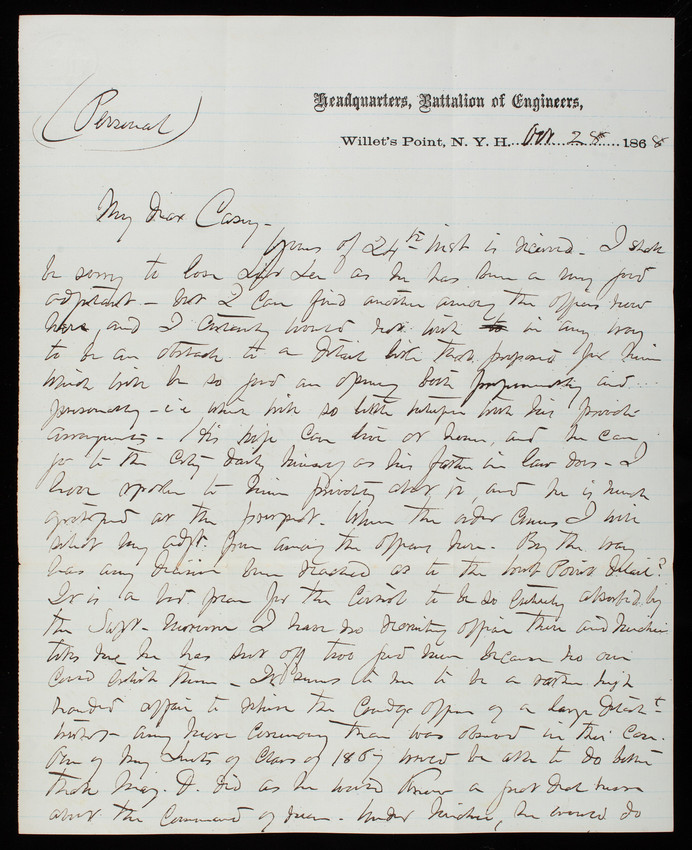 (Personal)
Headquarters, Battalion of Engineers,
Willet's Point, N. Y. H. Nov 28 1868
My Dear Casey -
Yours of 24th inst is received - I shall
be sorry to lose as he has been a very good
adjutant - but I can find another among the officers now
here, and I certainly would not wish in any way
to be an obstacle to a detail like that proposed for him
which will be so good an opening both and
personally - i e which will so little interfere with his private
arrangements - His wife can live at home, and he can
go to the City daily himself as his father in law does - I
have spoken to him privately about it, and he is much
gratified at the prospect. When the order comes I will
select my adjt. from among the officers here. By the way
has any decision been reached as to the West Point Detail?
It is a bad plan for the Control to be so entirely absorbed by
the Supt. Moreover I have no recruiting officer there and
tells me he has sent off two good men because no one
could enlist them - It seems to me to be a rather high
handed affair to relieve the officer of a large Detacht
without any more ceremony than was observed in this case.
One of my Lieuts of Class of 1867 would be able to do better
than Maj. D. did as he would know a good deal more
about the command of men. Under , he would do